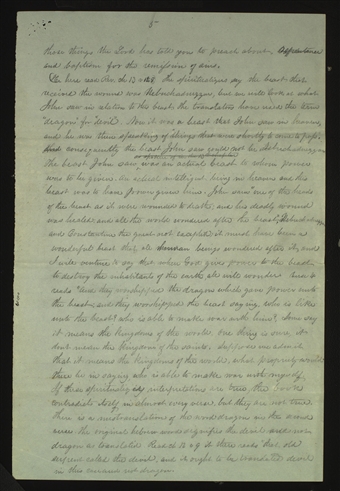 5
these things the Lord has told you to preach about, Repentance
and baptism for the remission of sins.
the beast
received the wound was Nebuchadnezzar, but we will look at what
John saw in relation to this beast; the translators have used the term
"dragon" for devil. Now it was a beast that John saw in heaven,
and he was then speaking of things
consequently the beast John saw could not be Nebuchadnezzar
the beast John saw was an actual beast to whom power
was to be given. An actual intelligent being in heaven and this
beast was to have power given him. John saw "one of the heads
of the beast as it were wounded to death; and his deadly wound
was healed; and all the world wondered after the beast;" Nebuchadnezzar
and Constantine the great not excepted; it must have been a
wonderful beast that all human beings wondered after it, and
I will venture to say that when God gives power to the beast
to destroy the inhabitants of the earth, all will wonder. Verse 4
reads "And they worshipped the dragon which gave power unto
the beast and they worshipped the beast saying, who is like
unto the beast? who is able to make war with him?" Some say
it means the kingdoms of the world. One thing is sure, it
dont mean the kingdom of the saints. Suppose we admit
that it means the kingdoms of the world, what propriety would
there be in saying who is able to make war with myself.
If these interpretations are true, the book
contradicts itself in almost every verse, but they are not true.
There is a mistranslation of the word dragon in the second
verse the original hebrew word signifies the devil and not
dragon as translated. Read it reads "that old
serpent called the devil, and it ought to be translated devil
in this case and not dragon.